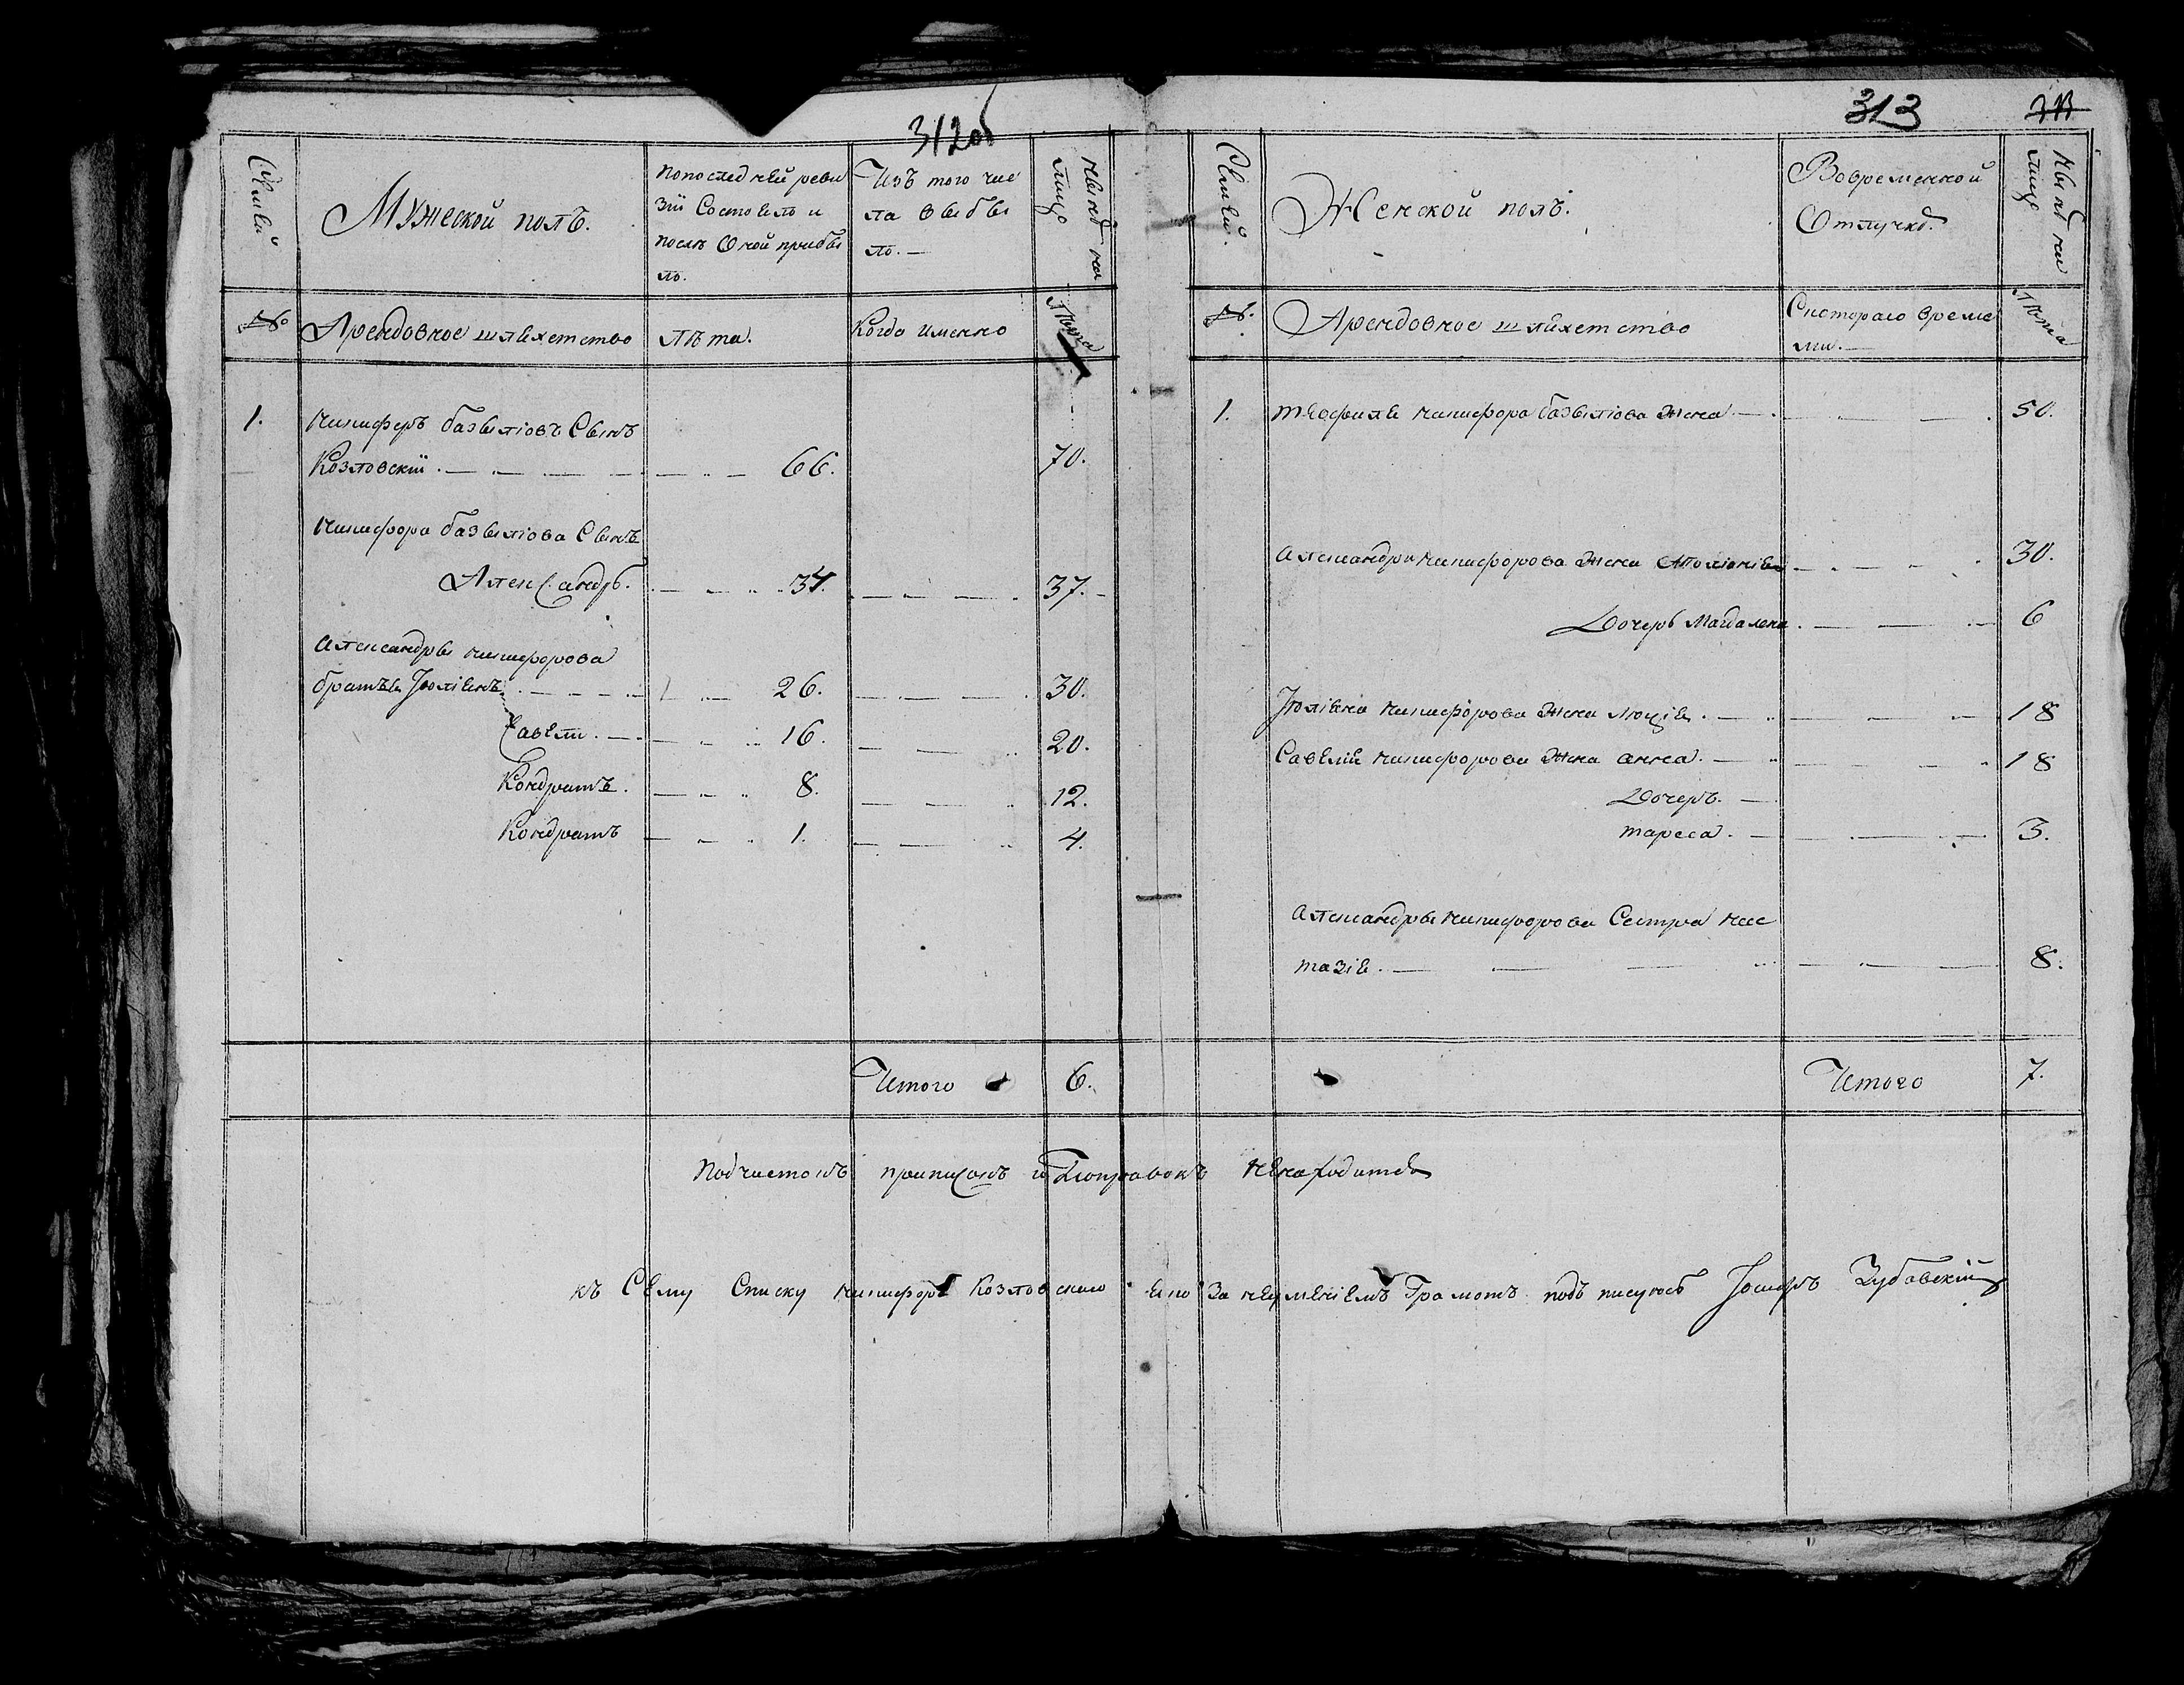 312об
Семьи
Мужеской полъ.
Попоследней реви
зіи Состоялъ и
послѣ Оной прибы
лъ.
Изъ того чис
ла выбы
лъ. —
Нынѣ на
лицо
№
Арендовное шляхетство
лѣта.
Когда именно
Лѣта
1.
Никиферъ базыліовъ Сынъ
Козловскій. — 66. 70.
Никифора базыліова Сынъ
Александръ. 34. 37.
Александры никифорова
братья Юліянъ 26. 30.
Савели. 16. 20.
Кондратъ. 8. 12.
Кондратъ 1. 4.
Итого 6.
313
Семьи.
Женской полъ.
Вовременной
Отлучкѣ.
Нынѣ на
лицо
№.
Арендовное шляхетство
Скотораго време
ми. —
Лѣта
1. теофиля никифора базыліова жена — 50.
александра никифорова жена Аполіонія 30.
Дочерь Магдалена 6
Юліяна никифорова жена люція. 18
Савелія никифорова жена анна. 18
Дочерь.
тареса. 3.
александры никифорова Сестра нас
тазія. 8.
Итого 7.
Подчистокъ приписокъ и Поправокъ ненаходится
къ Сему Списку никифора Козловскаго Его За неумениемъ Грамотъ подъ писуюсъ Іосифъ Зубовскій